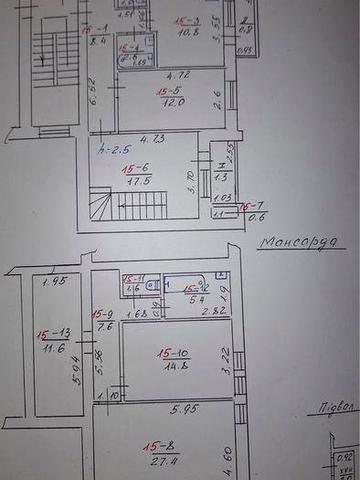 1.51
15-3
10.8
3.55
2
0.8
0.93
15-1
8.4
15-4
2.6
1.69
4.72
15-5
12.0
2.6
6.52
4.73
h=2.5
15-6
17.5
3.70
I
1.3
2.55
1.03
1.1
15-7
0.6
Мансарда
1.95
15-11
1.6
15-12
5.4
1.9
15-9
7.6
1.68
0.9
2.82
15-13
11.6
5.94
5.56
15-10
14.8
3.22
1.10
5.95
Підвал
15-8
27.4
4.60
0.92
XVII